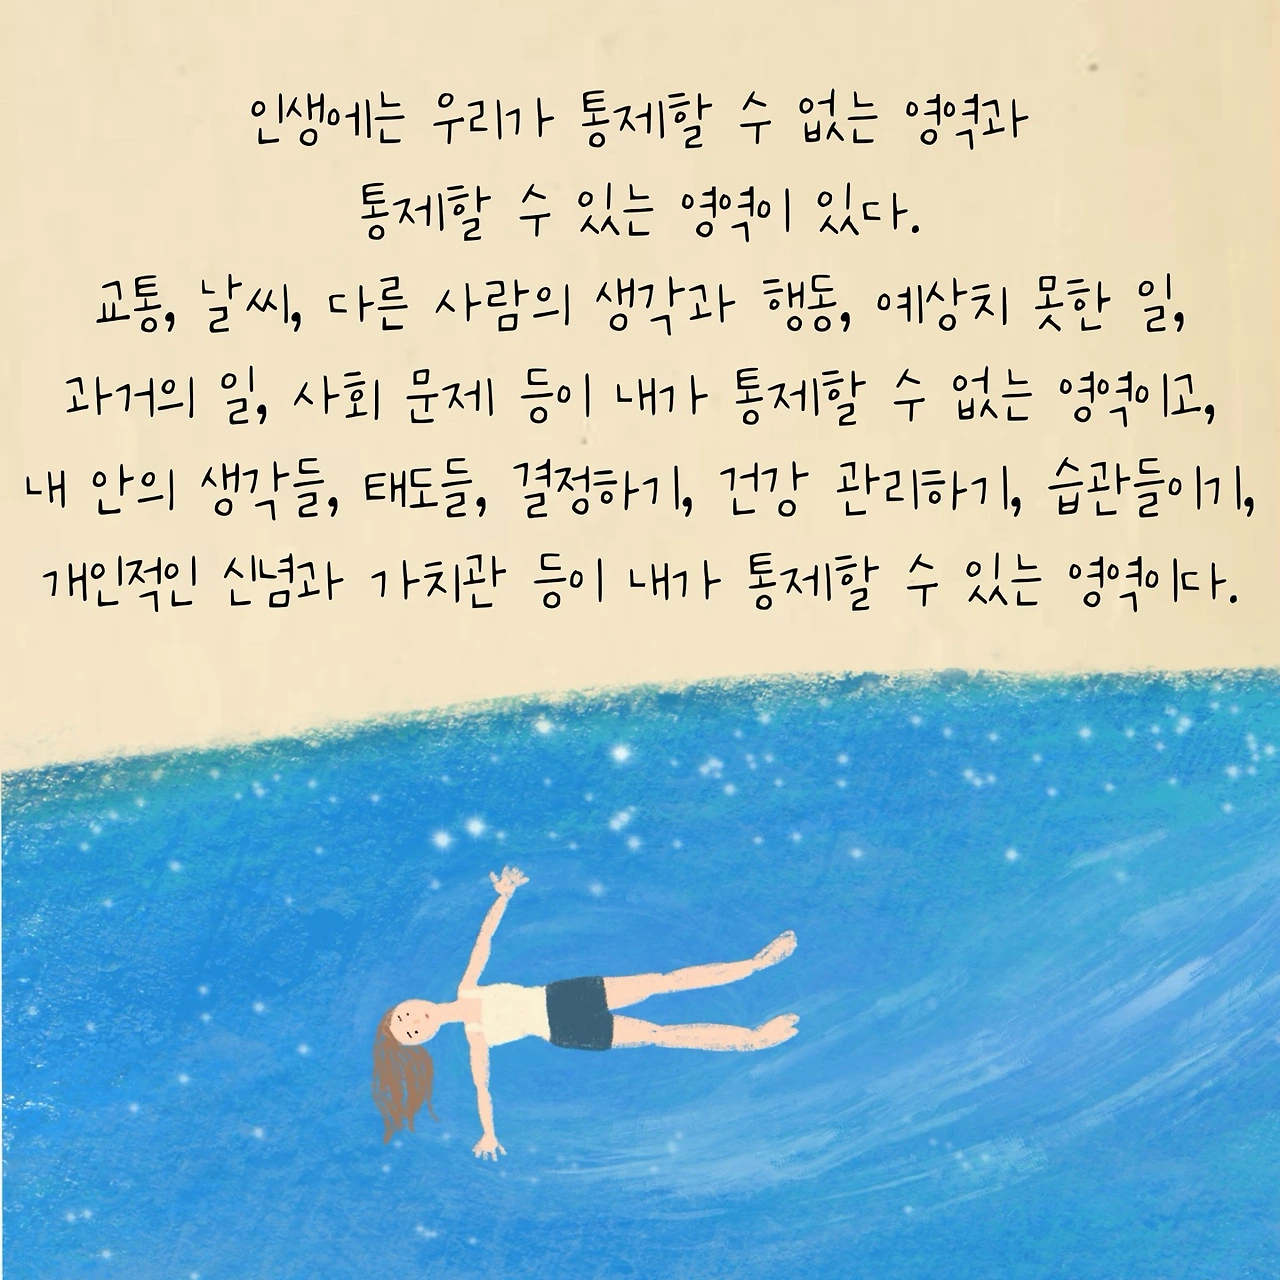 인생에는 우리가 통제할 수 없는 영역과
통제할 수 있는 영역이 있다.
교통, 날씨, 다른 사람의 생각과 행동, 예상치 못한 일,
과거의 일, 사회 문제 등이 내가 통제할 수 없는 영역이고,
내 안의 생각들, 태도들, 결정하기, 건강 관리하기, 습관들이기,
개인적인 신념과 가치관 등이 내가 통제할 수 있는 영역이다.